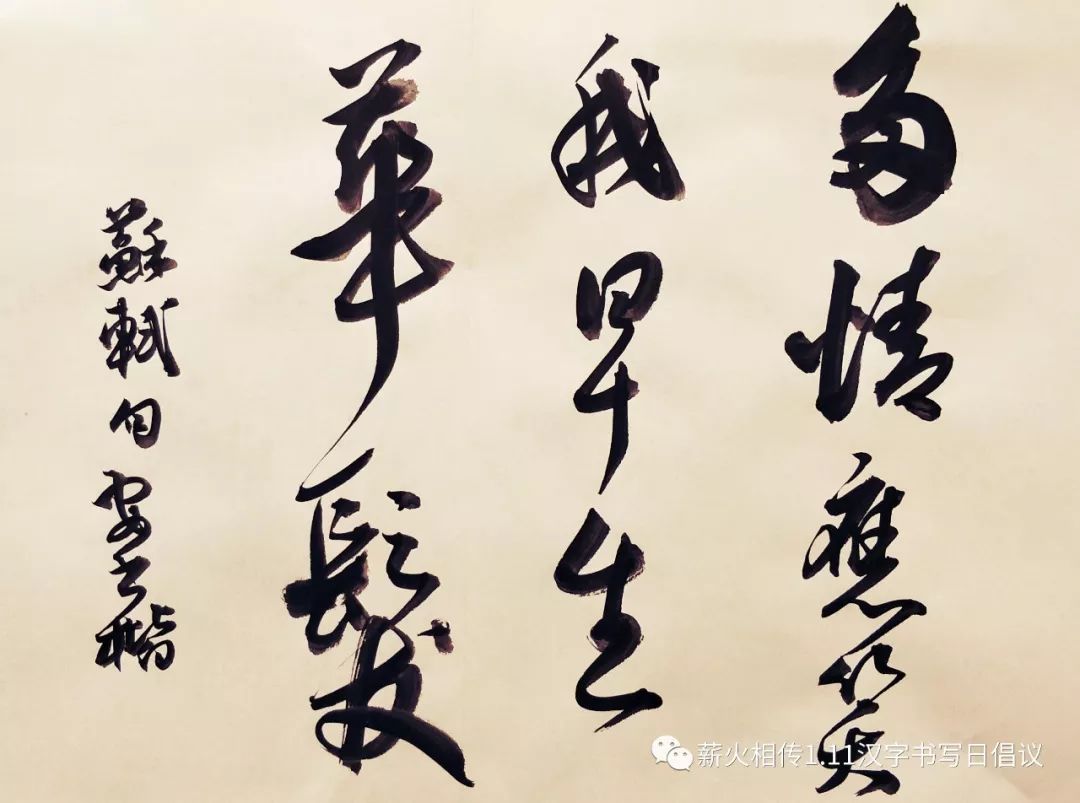 多情應笑
我早生
華髮
蘇軾句 安云楷
薪火相传1.11汉字书写日倡议